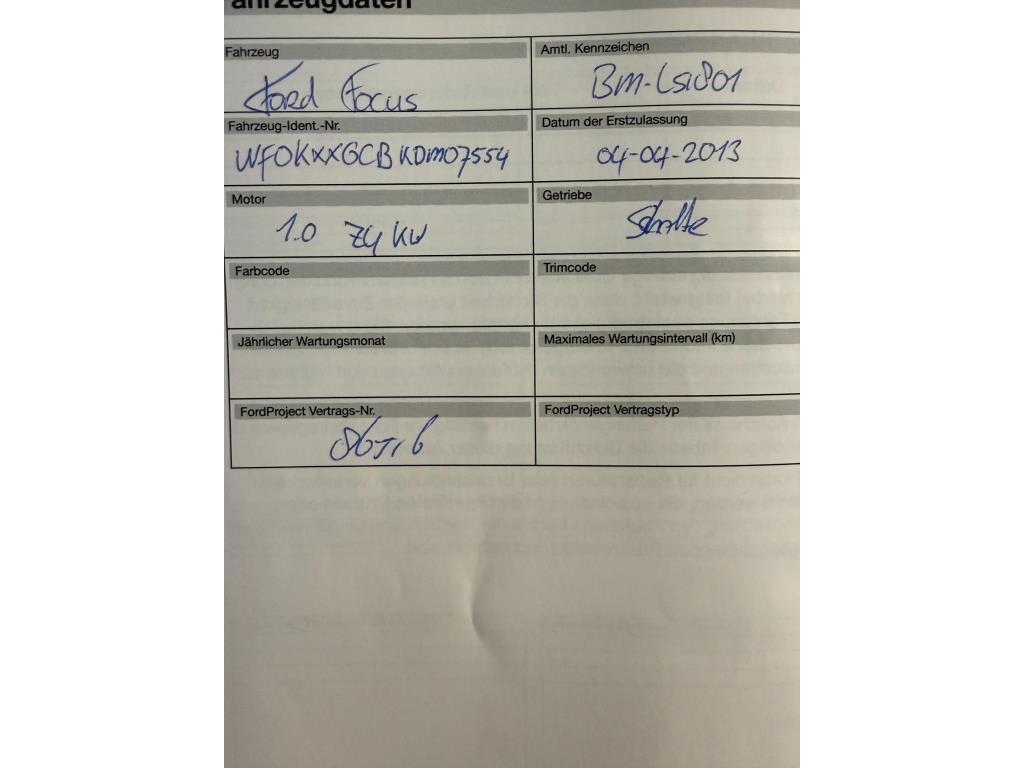 Fahrzeugdaten
Fahrzeug
Amtl. Kennzeichen
Ford Focus
BM-LS1801
Fahrzeug-Ident.-Nr.
Datum der Erstzulassung
WF0KXXGCBKDM07554
04-04-2013
Motor
Getriebe
1.0 74 KW
Farbcode
Trimcode
Jährlicher Wartungsmonat
Maximales Wartungsintervall (km)
FordProject Vertrags-Nr.
FordProject Vertragstyp